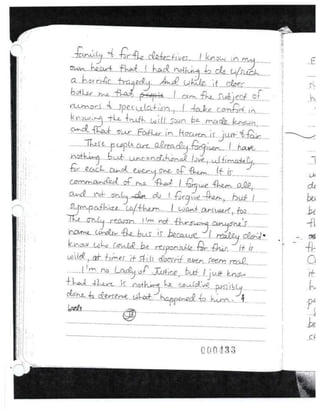 family & for the detectives. I know in my
own heart that I had nothing to do w/such
a horrific tragedy. And while it does
bother me that I am the subject of
rumors & speculation, I take comfort in
knowing the truth will soon be made known
and that our Father in Heaven is just & fair.
These people are already forgiven. I have
nothing but unconditional love, ultimately,
for each and every one of them. It is
commanded of me that I forgive them all,
and not only do I forgive them, but I
sympathize w/them. I want answers, too.
The only reason I'm not throwing anyone's
name under the bus is because I really don't
know who could be responsible for this. It is
wild, at times it still doesn't even seem real.
I'm no Lady of Justice, but I just know
that there is nothing he could've possibly
done to deserve what happened to him.
000433